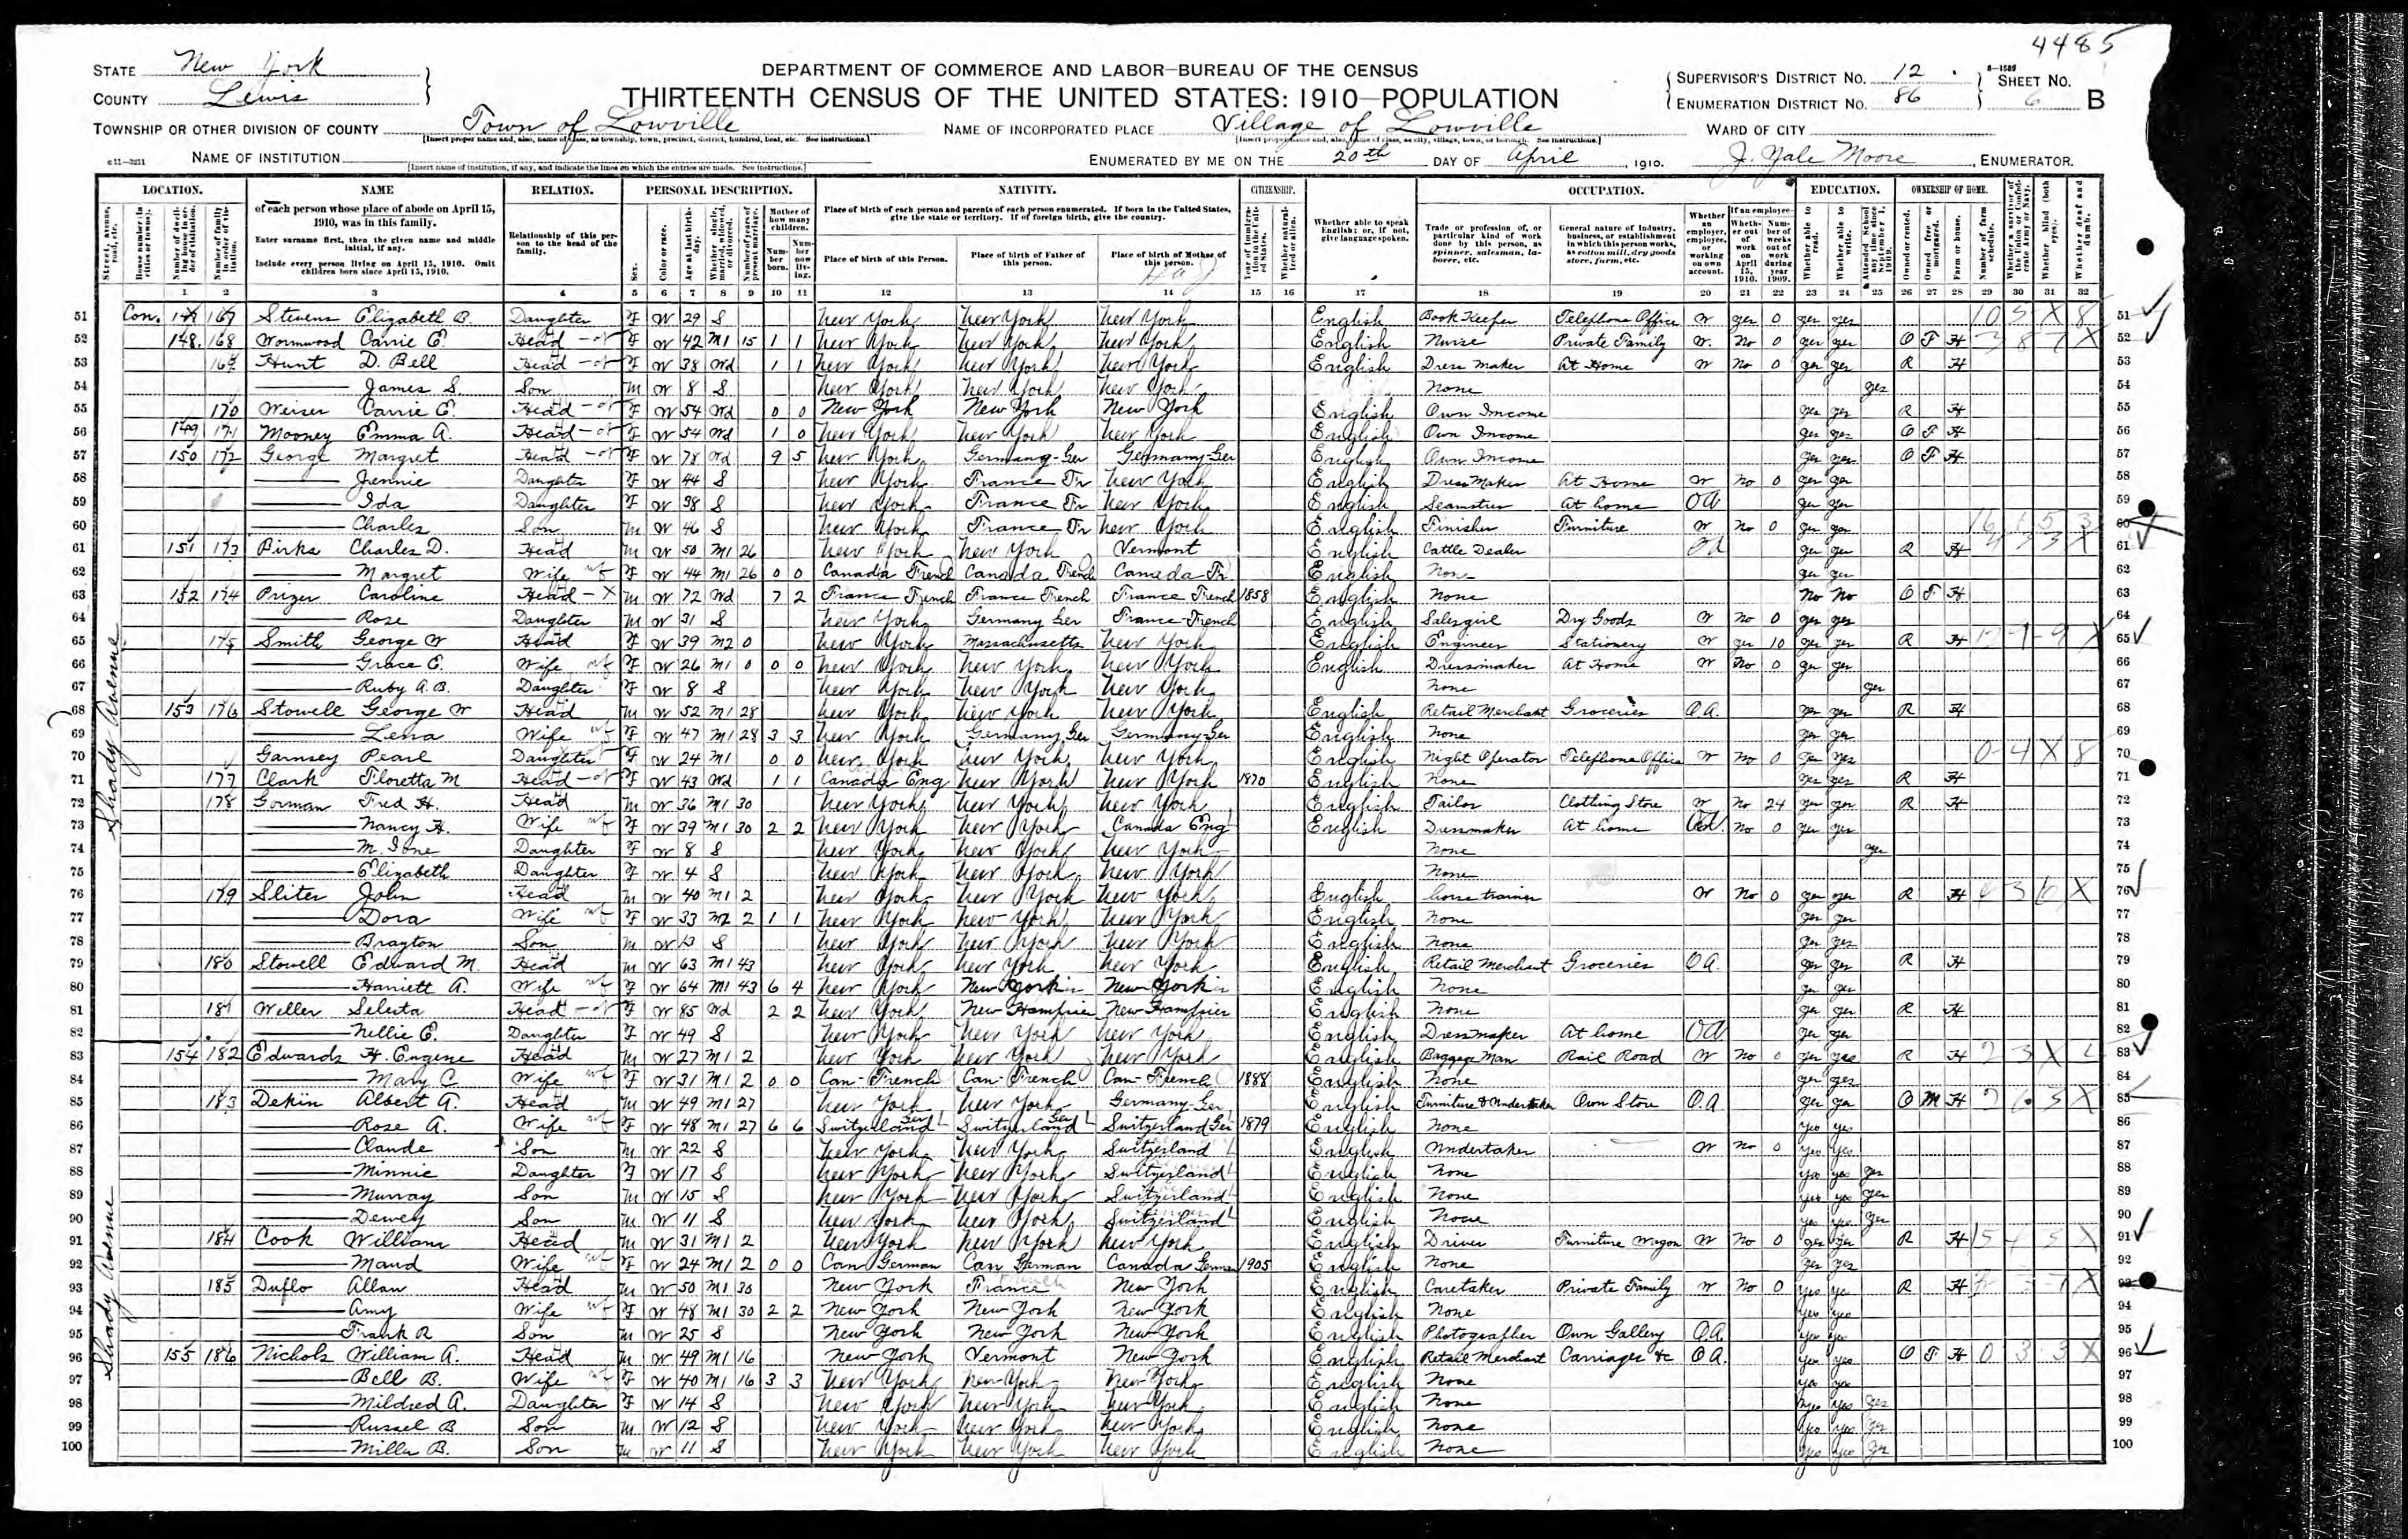 4485
STATE New York
COUNTY Lewis
DEPARTMENT OF COMMERCE AND LABOR—BUREAU OF THE CENSUS
THIRTEENTH CENSUS OF THE UNITED STATES: 1910—POPULATION
SUPERVISOR'S DISTRICT No. 12
ENUMERATION DISTRICT No. 86
SHEET No. 6 B
TOWNSHIP OR OTHER DIVISION OF COUNTY Town of Lowville
NAME OF INCORPORATED PLACE Village of Lowville
WARD OF CITY
NAME OF INSTITUTION
ENUMERATED BY ME ON THE 20th DAY OF April, 1910. J. Yale Moore, ENUMERATOR.
LOCATION. NAME RELATION. PERSONAL DESCRIPTION. NATIVITY. CITIZENSHIP. OCCUPATION. EDUCATION. OWNERSHIP OF HOME.
of each person whose place of abode on April 15, 1910, was in this family.
Enter surname first, then the given name and middle initial, if any.
Include every person living on April 15, 1910. Omit children born since April 15, 1910.
Relationship of this person to the head of the family.
Place of birth of each person and parents of each person enumerated. If born in the United States, give the state or territory. If of foreign birth, give the country.
Place of birth of this Person. Place of birth of Father of this person. Place of birth of Mother of this person.
Whether able to speak English; or, if not, give language spoken.
Trade or profession of, or particular kind of work done by this person, as spinner, salesman, laborer, etc.
General nature of industry, business, or establishment in which this person works, as cotton mill, dry goods store, farm, etc.
Whether an employer, employee, or working on own account.
1 2 3 4 5 6 7 8 9 10 11 12 13 14 15 16 17 18 19 20 21 22 23 24 25 26 27 28 29 30 31 32
Shady Avenue
51 Con. 167 Stevens Elizabeth B. Daughter F W 29 S New York New York New York English Book Keeper Telephone Office W yes 0 yes yes 51
52 148 168 Wormwood Carrie E. Head F W 42 M1 15 1 1 New York New York New York English Nurse Private Family W No 0 yes yes O F H 52
53 169 Hunt D. Bell Head F W 38 Wd 1 1 New York New York New York English Dress Maker At Home W No 0 yes yes R H 53
54 James S. Son M W 8 S New York New York New York None yes 54
55 170 Weiser Carrie E. Head F W 54 Wd 0 0 New York New York New York English Own Income yes yes R H 55
56 149 171 Mooney Emma A. Head F W 54 Wd 1 0 New York New York New York English Own Income yes yes O F H 56
57 150 172 George Margret Head F W 78 Wd 9 5 New York Germany-Ger Germany-Ger English Own Income yes yes O F H 57
58 Jennie Daughter F W 44 S New York France Fr New York English Dress Maker At Home W No 0 yes yes 58
59 Ida Daughter F W 38 S New York France Fr New York English Seamstres At home OA yes yes 59
60 Charles Son M W 46 S New York France Fr New York English Finisher Furniture W No 0 yes yes 60
61 151 173 Birks Charles D. Head M W 50 M1 26 New York New York Vermont English Cattle Dealer OA yes yes R H 61
62 Margret Wife F W 44 M1 26 0 0 Canada French Canada French Canada Fr. English None yes yes 62
63 152 174 Prizer Caroline Head M W 72 Wd 7 2 France French France French France French 1858 English None No No O F H 63
64 Rose Daughter M W 31 S New York Germany Ger France French English Salesgirl Dry Goods W No 0 yes yes 64
65 175 Smith George W Head F W 39 M2 0 New York Massachusetts New York English Engineer Stationery W yes 10 yes yes R H 65
66 Grace E. Wife F W 26 M1 0 0 0 New York New York New York English Dressmaker At Home W No 0 yes yes 66
67 Ruby A. B. Daughter F W 8 S New York New York New York None yes 67
68 153 176 Stowell George W Head M W 52 M1 28 New York New York New York English Retail Merchant Groceries O.A. yes yes R H 68
69 Lena Wife F W 47 M1 28 3 3 New York Germany Ger Germany Ger English None yes yes 69
70 Garnsey Pearl Daughter F W 24 M1 0 0 New York New York New York English Night Operator Telephone Office W No 0 yes yes 70
71 177 Clark Floretta M Head F W 43 Wd 1 1 Canada Eng New York New York 1870 English None yes yes R H 71
72 178 Gorman Fred H. Head M W 36 M1 30 New York New York New York English Tailor Clothing Store W No 24 yes yes R H 72
73 Nancy H. Wife F W 39 M1 30 2 2 New York New York Canada Eng English Dressmaker At home OA No 0 yes yes 73
74 M. Ione Daughter F W 8 S New York New York New York None yes 74
75 Elizabeth Daughter F W 4 S New York New York New York None 75
76 179 Sliter John Head M W 40 M1 2 New York New York New York English horse trainer W No 0 yes yes R H 76
77 Dora Wife F W 33 M2 2 1 1 New York New York New York English None yes yes 77
78 Brayton Son M W 13 S New York New York New York English None yes yes 78
79 180 Stowell Edward M. Head M W 63 M1 43 New York New York New York English Retail Merchant Groceries OA. yes yes R H 79
80 Harriett A. Wife F W 64 M1 43 6 4 New York New York New York English None yes yes 80
81 181 Weller Selesta Head F W 85 Wd 2 2 New York New Hampsier New Hampsier English None yes yes R H 81
82 Nellie E. Daughter F W 49 S New York New York New York English Dressmaker At home OA yes yes 82
83 154 182 Edwards H. Eugene Head M W 27 M1 2 New York New York New York English Baggage Man Rail Road W No 0 yes yes R H 83
84 Mary C Wife F W 31 M1 2 0 0 Can-French Can-French Can-French 1888 English None yes yes 84
85 183 Dekin Albert A. Head M W 49 M1 27 New York New York Germany-Ger English Furniture & Undertaker Own Store O.A yes yes O M H 85
86 Rose A. Wife F W 48 M1 27 6 6 Switzerland Ger Switzerland Ger Switzerland Ger 1879 English None yes yes 86
87 Claude Son M W 22 S New York New York Switzerland English Undertaker W No 0 yes yes 87
88 Minnie Daughter F W 17 S New York New York Switzerland English None yes yes yes 88
89 Murray Son M W 15 S New York New York Switzerland English None yes yes yes 89
90 Dewey Son M W 11 S New York New York Switzerland English None yes yes yes 90
91 184 Cook William Head M W 31 M1 2 New York New York New York English Driver Furniture Wagon W No 0 yes yes R H 91
92 Maud Wife F W 24 M1 2 0 0 Can German Can German Canada German 1905 English None yes yes 92
93 185 Duflo Allan Head M W 50 M1 30 New York France New York English Caretaker Private Family W No 0 yes yes R H 93
94 Amy Wife F W 48 M1 30 2 2 New York New York New York English None yes yes 94
95 Frank R Son M W 25 S New York New York New York English Photographer Own Gallery O.A. yes yes 95
96 155 186 Nichols William A. Head M W 49 M1 16 New York Vermont New York English Retail Merchant Carriages &c OA. yes yes O F H 96
97 Bell B. Wife F W 40 M1 16 3 3 New York New York New York English None yes yes 97
98 Mildred A. Daughter F W 14 S New York New York New York English None yes yes yes 98
99 Russel B Son M W 12 S New York New York New York English None yes yes yes 99
100 Mills B. Son M W 11 S New York New York New York English None yes yes yes 100
Shady Avenue